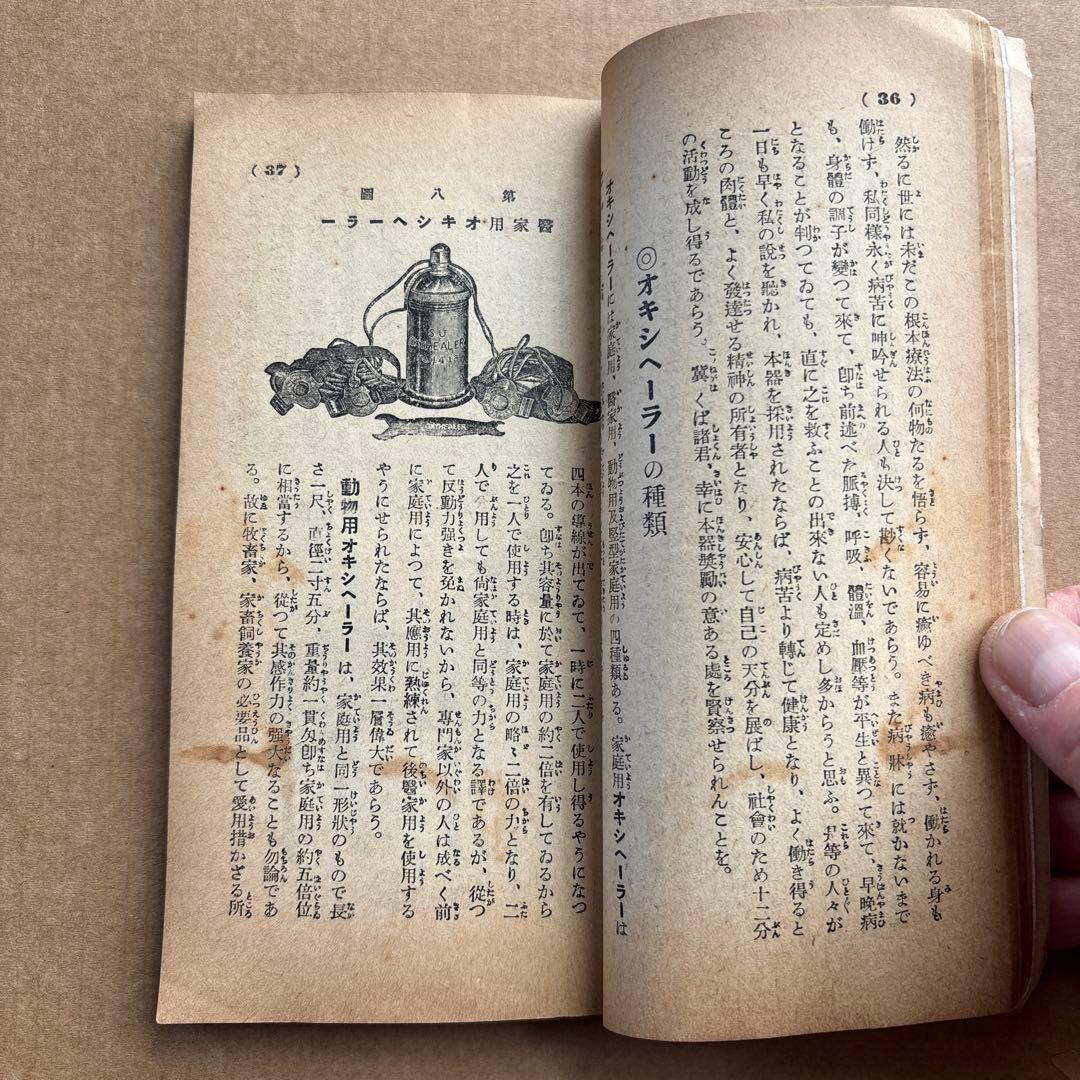 ( 36 )
然るに世には未だこの根本療法の何物たるを悟らず、容易に癒ゆべき病も癒やさず、働かれる身も
働けず、私同樣永く病苦に呻吟せられる人も決して尠くないであらう。また病牀には就かないまで
も、身體の調子が變つて來て、卽ち前述べた脈搏、呼吸、體溫、血壓等が平生と異つて來て、早晩病
となることが判つてゐても、直に之を救ふことの出來ない人も定めし多からうと思ふ。是等の人々が
一日も早く私の說を聽かれ、本器を採用されたならば、病苦より轉じて健康となり、よく働き得ると
ころの肉體と、よく發達せる精神の所有者となり、安心して自己の天分を展ばし、社會のため十二分
の活動を成し得るであらう。冀くば諸君、幸に本器奬勵の意ある處を賢察せられんことを。
◎オキシヘーラーの種類
オキシヘーラーには家庭用、醫家用、動物用及堅型家庭用の四種類ある。家庭用オキシヘーラーは
( 37 )
第八圖
醫家用オキシヘーラー
OXYHEALER
OXYHEALER
四本の導線が出てゐて、一時に二人で使用し得るやうになつ
てゐる。卽ち其容量に於て家庭用の約二倍を有してゐるから
之を一人で使用する時は、家庭用の略々二倍の力となり、二
人で使用しても尙家庭用と同等の力となる譯であるが、從つ
て反動力強きを免かれないから、專門家以外の人は成べく前
に家庭用によつて、其應用に熟練されて後醫家用を使用する
やうにせられたならば、其效果一層偉大であらう。
動物用オキシヘーラー は、家庭用と同一形狀のもので長
さ一尺、直徑二寸五分、重量約一貫匁卽ち家庭用の約五倍位
に相當するから、從つて其感作力の强大なることも勿論であ
る。故に牧畜家、家畜飼養家の必要品として愛用措かざる所